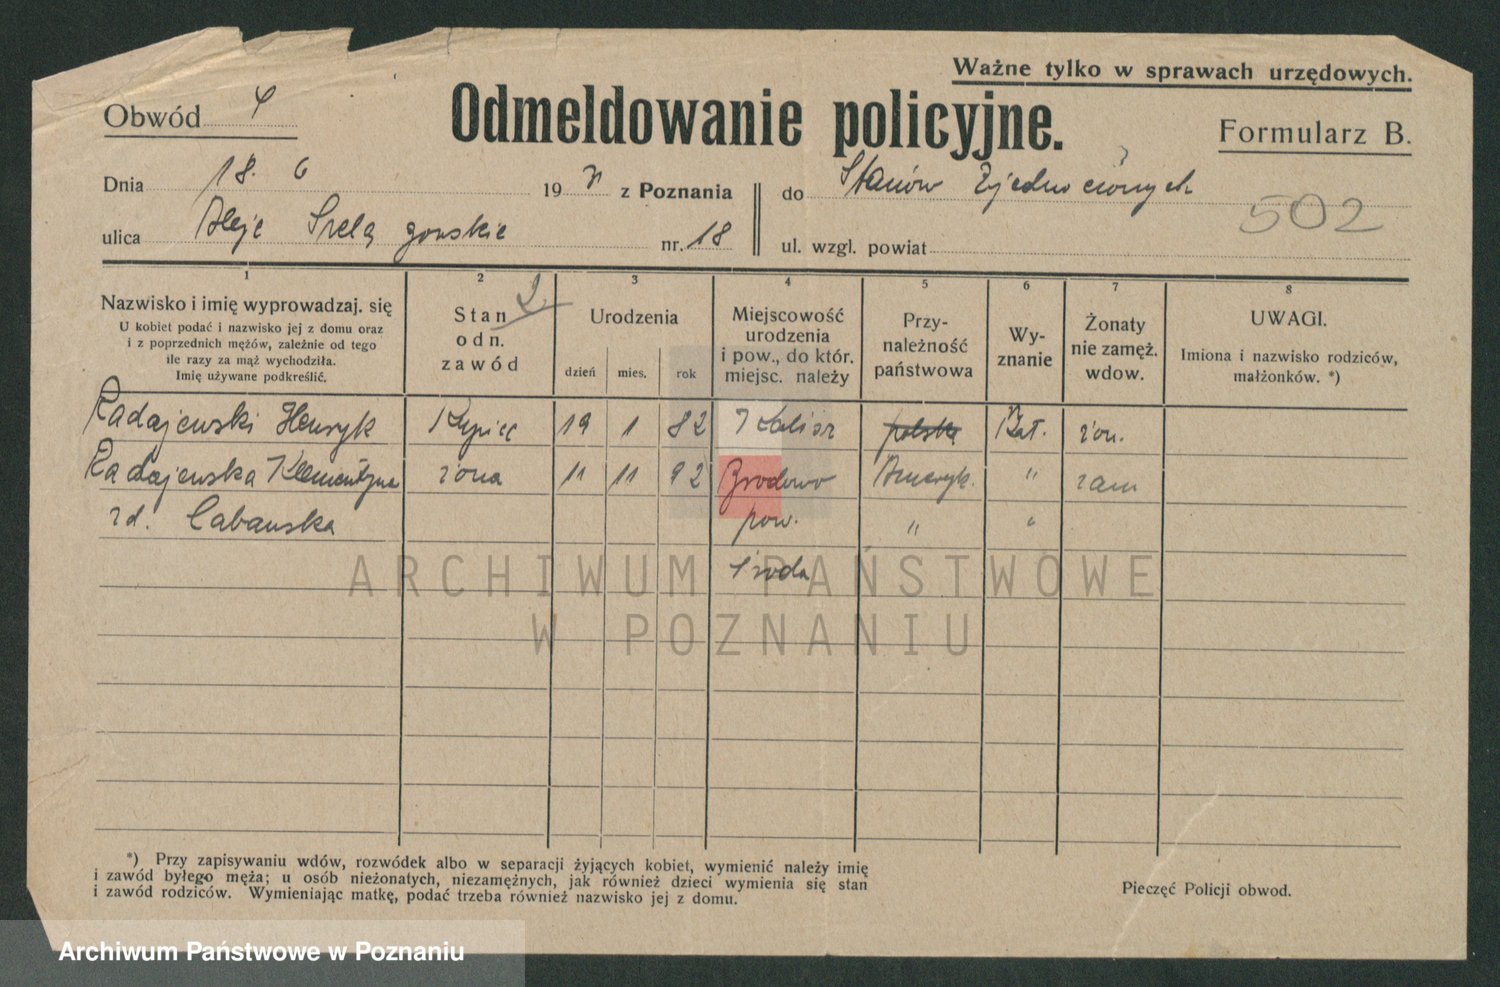 Ważne tylko w sprawach urzędowych.
Obwód 4
Odmeldowanie policyjne.
Formularz B.
Dnia 18. 6 19 z Poznania do Stanów Zjednoczonych
502
ulica Aleje Szelągowskie nr. 18 ul. wzgl. powiat
1 2 3 4 5 6 7 8
Nazwisko i imię wyprowadzaj. się
U kobiet podać i nazwisko jej z domu oraz
i z poprzednich mężów, zależnie od tego
ile razy za mąż wychodziła.
Imię używane podkreślić.
2
Stan
odn.
zawód
Urodzenia
dzień mies. rok
Miejscowość
urodzenia
i pow., do któr.
miejsc. należy
Przy-
należność
państwowa
Wy-
znanie
Żonaty
nie zamęż.
wdow.
UWAGI.
Imiona i nazwisko rodziców,
małżonków. *)
Radajewski Henryk Kupiec 19 1 82 Kalisz polska Kat. żon.
Radajewska Klementyna żona 11 11 92 Brodowo Ameryk. " zam
zd. Cabanska pow. " "
Środa
ARCHIWUM PAŃSTWOWE
W POZNANIU
*) Przy zapisywaniu wdów, rozwódek albo w separacji żyjących kobiet, wymienić należy imię
i zawód byłego męża; u osób nieżonatych, niezamężnych, jak również dzieci wymienia się stan
i zawód rodziców. Wymieniając matkę, podać trzeba również nazwisko jej z domu.
Pieczęć Policji obwod.
Archiwum Państwowe w Poznaniu